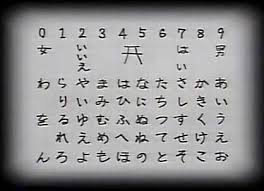 0 1 2 3 4 5 6 7 8 9
男
はい
いいえ
女
あいうえお
かきくけこ
さしすせそ
たちつてと
なにぬねの
はひふへほ
まみむめも
やゆよ
らりるれろ
わをん